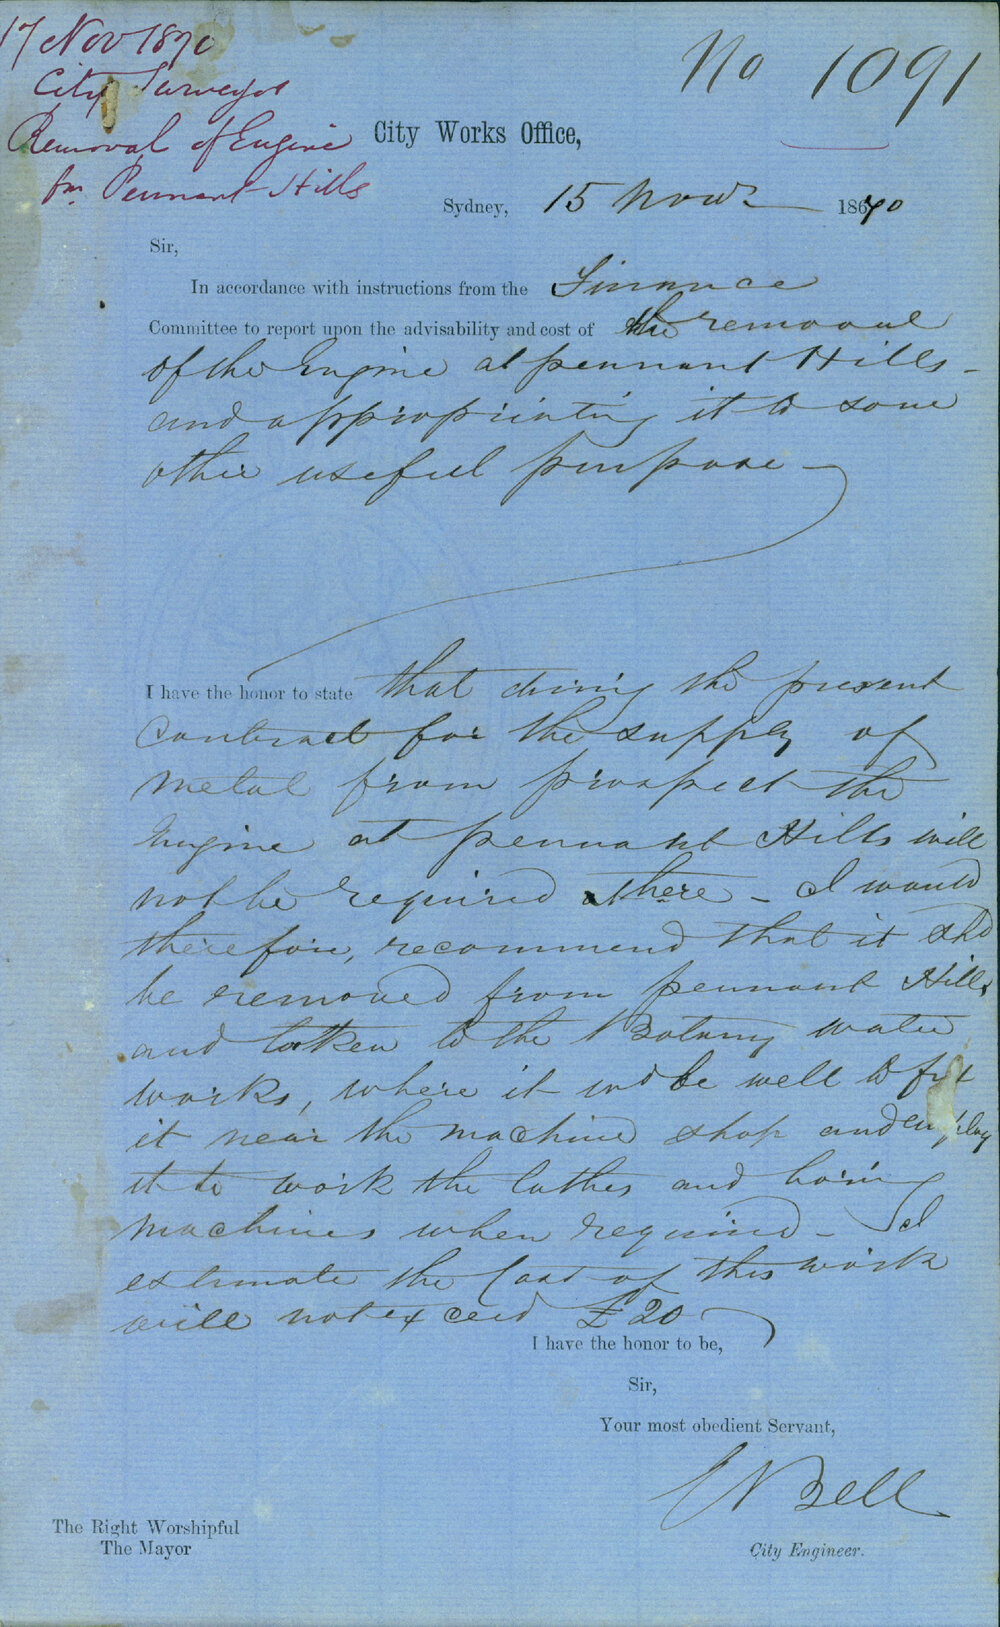 17 Nov 1870
City Surveyor
Removal of Engine
fm. Pennant Hills
No 1091
City Works Office,
Sydney, 15 Novr 1870
Sir,
In accordance with instructions from the Finance
Committee to report upon the advisability and cost of the removal
of the Engine at pennant Hills -
and appropriating it to some
other useful purpose -
I have the honor to state that during the present
Contract for the supply of
metal from prospect the
Engine at pennant Hills will
not be required there - I would
therefore, recommend that it shd
be removed from pennant Hills
and taken to the Botany water
works, where it wd be well to fix
it near the machine shop and employ
it to work the lathes and boring
machines when required - I
estimate the Cost of this work
will not exceed £20
I have the honor to be,
Sir,
Your most obedient Servant,
E Bell
City Engineer.
The Right Worshipful
The Mayor